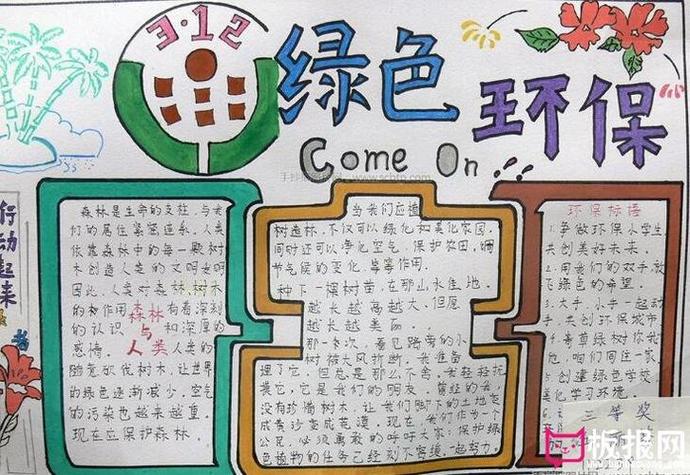 3·12
绿色
环保
Come On
行动起来
森林是生命的支柱,与我
们的居住紧密连系,人类
依靠森林中的每一颗树
木创造人类的文明
因此,人类对森林,树木
的和作用
有着深刻
的认识
和深厚的
感情。
人类的
森林
与
人类
树木,让世界
的绿色逐渐减少,空气
的污染也越来越重。
现在应保护森林。
当我们应植
树造林,不仅可以绿化和美化家园,
同时还可以净化空气,保护农田,调
节气候的变化,等等作用。
种下一棵树苗,在那山水佳地,
越长越高越大,但愿
越长越美丽。
那一次,看见路旁的小
树被大风折断,我准备
埋了它,但总是那么不舍,我轻轻抚
摸它,它是我们的朋友,曾经的我
没有珍惜树木,让我们脚下的土地变
成黄沙变成荒漠,现在,我们作为一个
公民,必须勇敢的呼吁大家:保护绿
色植物的任务已经刻不容缓一起努力
环保标语
1.争做环保小学生,
共创美好未来。
2.用我们的双手放
飞绿色的希望。
3.大手,小手一起动
手,共创环保城市
4.尊草绿树你我
他,咱们同住一家
5.创建绿色学校
美化学习环境。
三等奖
板报网